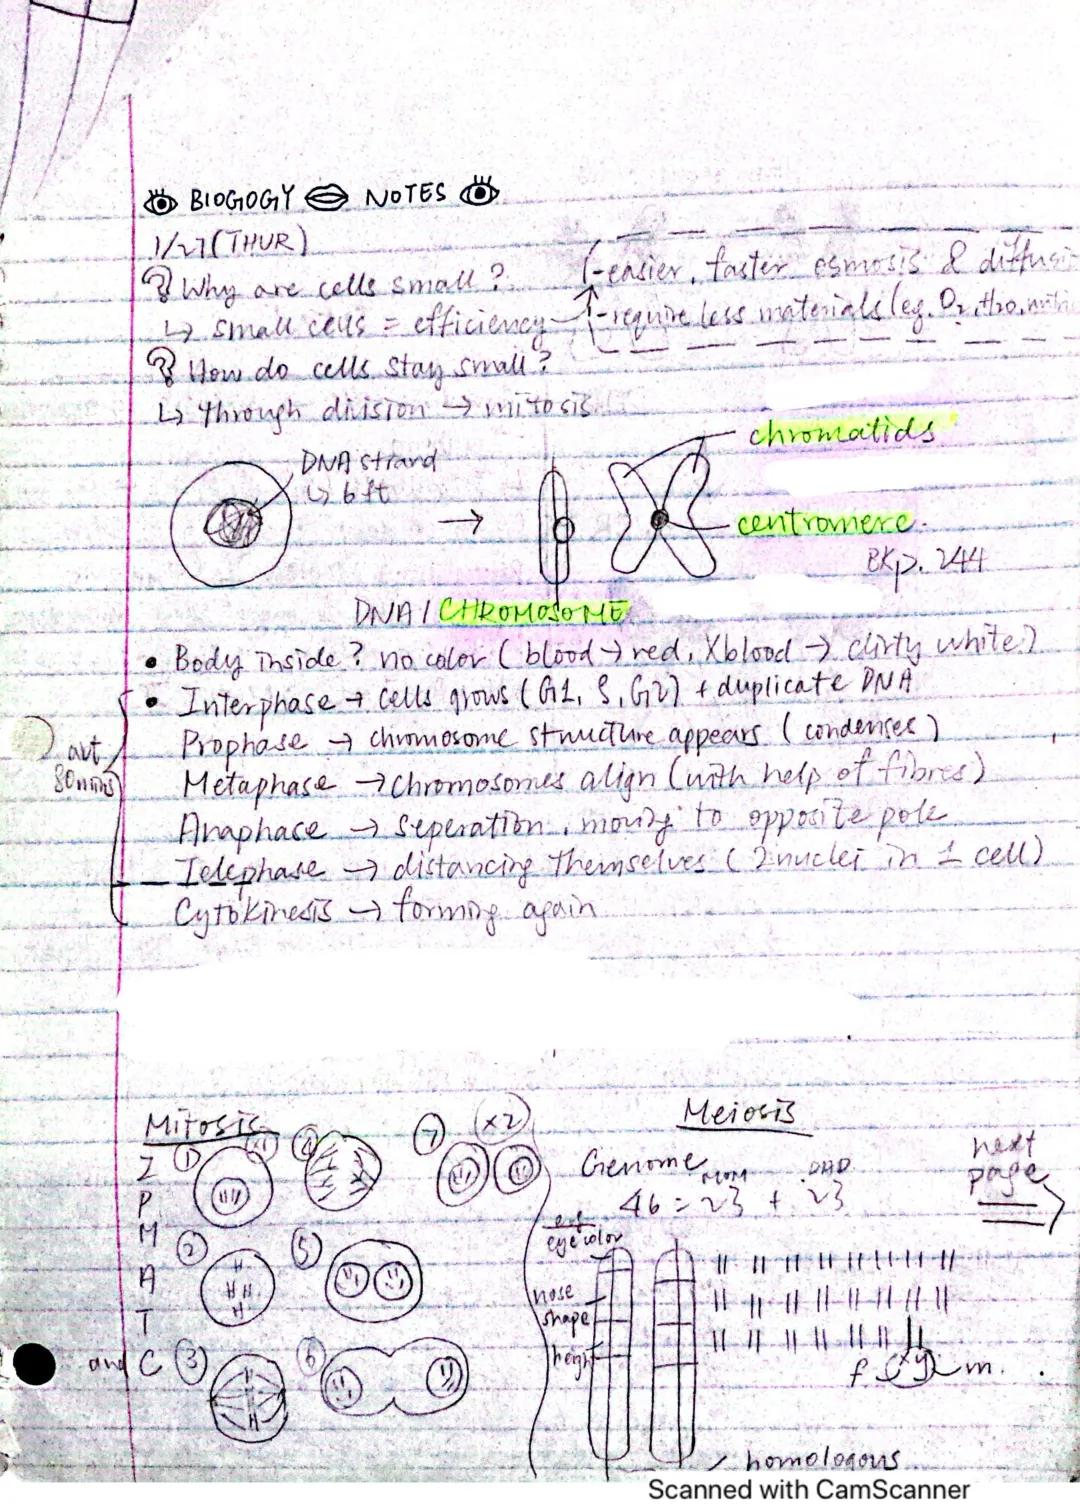 BIOGOGY NOTES
1/27 (THUR)
? Why are cells small?
↳ small cells = efficiency
-easier, faster osmosis & diffusi
-require less materials (eg. O₂, H₂O,
? How do cells stay small?
↳ through division → mitosis
DNA strand
↳ 6 ft
→
chromatids
centromere.
BK p. 244
DNA / CHROMOSOME
• Body inside? no color (blood → red, Xblood → dirty white)
• Interphase → cells grows (G1, S, G2) + duplicate DNA
Prophase → chromosome structure appears (condenses)
abt 80mins
Metaphase → chromosomes align (with help of fibres)
Anaphase → seperation, moving to opposite pole
Telephase → distancing themselves (2 nuclei in 1 cell)
Cytokinesis → forming again
Mitosis
I
P
M
A
T
and C
① (x1)
②
③
④
⑤
⑥
⑦ (x2)
Meiosis
next page
Genome
MOM DAD
46 = 23 + 23
eye color
nose shape
height
f xy m.
homologous
Scanned with CamScanner